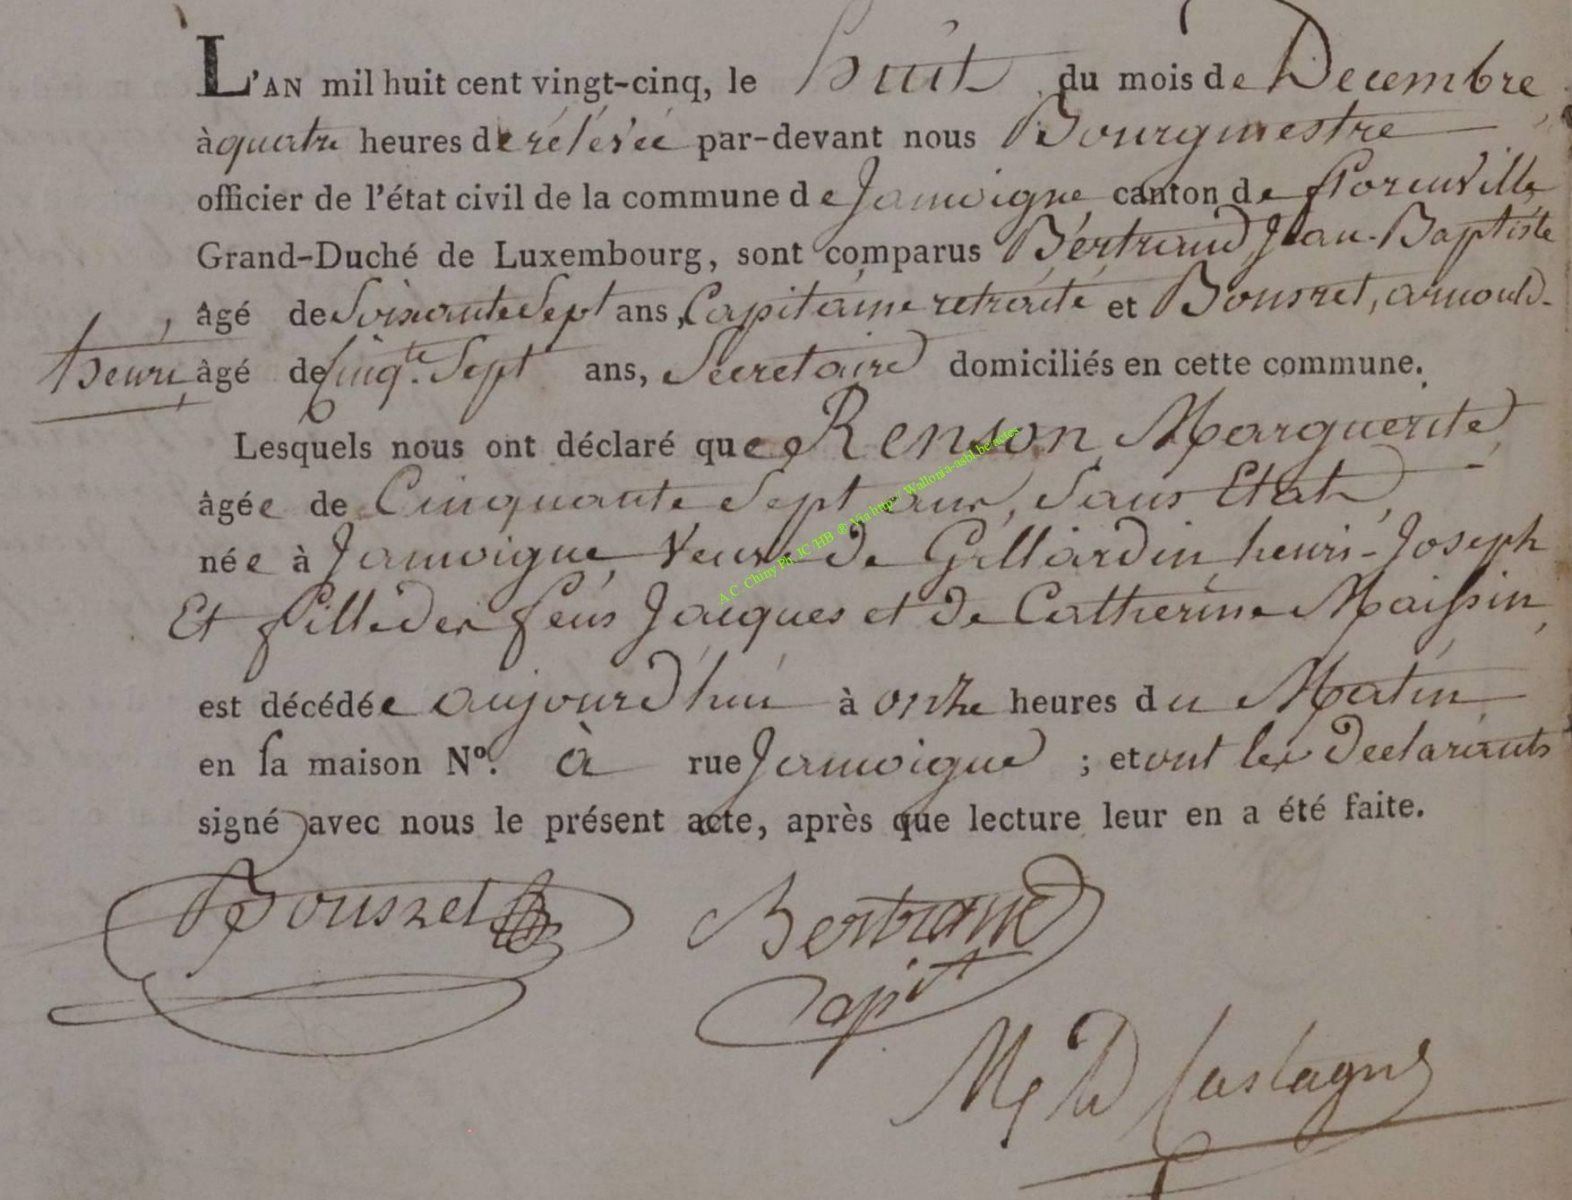 L'AN mil huit cent vingt-cinq, le huit du mois de Decembre
à quatre heures de rélévée par-devant nous Bourgmestre
officier de l'état civil de la commune de Jamoigne canton de florenville
Grand-Duché de Luxembourg, sont comparus Bertrand Jean-Baptiste
, âgé de Soixante Sept ans, Capitaine retraité et Bousret, arnould-
henri, âgé de Cinqte. Sept ans, Secretaire domiciliés en cette commune.
Lesquels nous ont déclaré que Renson Marguerite,
âgée de Cinquante Sept ans, Sans Etat,
née à Jamoigne, Veuve de Gillardin henri-Joseph
Et fille des feus Jacques et de Catherine Maissin,
est décédée aujourd'hui à onze heures du Matin
en sa maison N°. à rue Jamoigne ; et ont les Declarants
signé avec nous le présent acte, après que lecture leur en a été faite.
Bousret Bertrand
Capit
A.C Chiny Ph JC HB ® Via http:// Wallonia-asbl.be/actes